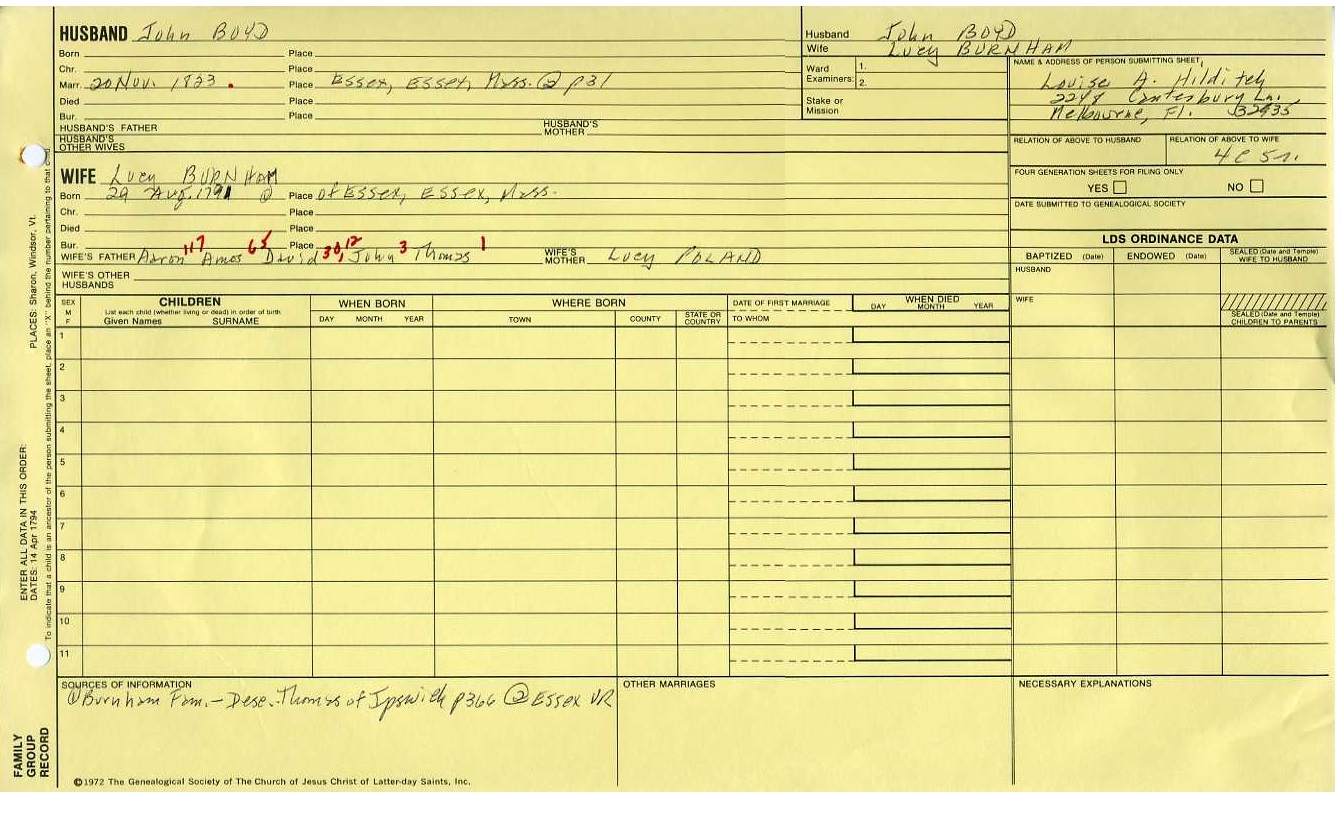 HUSBAND John BOYD
Born Place
Chr. Place
Marr. 20 Nov. 1823 . Place Essex, Essex, Mass. ② p31
Died Place
Bur. Place
HUSBAND'S FATHER HUSBAND'S MOTHER
HUSBAND'S OTHER WIVES
Husband John BOYD
Wife Lucy BURNHAM
Ward Examiners: 1.
2.
Stake or Mission
NAME & ADDRESS OF PERSON SUBMITTING SHEET
Louise A. Hilditch
2248 Canterbury Ln.
Melbourne, Fl. 32935
RELATION OF ABOVE TO HUSBAND RELATION OF ABOVE TO WIFE
4C 5r.
FOUR GENERATION SHEETS FOR FILING ONLY
YES NO
DATE SUBMITTED TO GENEALOGICAL SOCIETY
WIFE Lucy BURNHAM
Born 29 Aug. 1791 ① Place of Essex, Essex, Mass.
Chr. Place
Died Place
Bur. Place
117 65 30,12 3 1
WIFE'S FATHER Aaron Amos David John Thomas WIFE'S MOTHER Lucy POLAND
WIFE'S OTHER HUSBANDS
LDS ORDINANCE DATA
BAPTIZED (Date) ENDOWED (Date) SEALED (Date and Temple) WIFE TO HUSBAND
HUSBAND
WIFE
SEALED (Date and Temple) CHILDREN TO PARENTS
SEX M F
CHILDREN
List each child (whether living or dead) in order of birth
Given Names SURNAME
WHEN BORN
DAY MONTH YEAR
WHERE BORN
TOWN COUNTY STATE OR COUNTRY
DATE OF FIRST MARRIAGE
TO WHOM
WHEN DIED
DAY MONTH YEAR
1
2
3
4
5
6
7
8
9
10
11
SOURCES OF INFORMATION
① Burnham Fam. – Desc. Thomas of Ipswich p366 ② Essex VR
OTHER MARRIAGES
NECESSARY EXPLANATIONS
©1972 The Genealogical Society of The Church of Jesus Christ of Latter-day Saints, Inc.
FAMILY GROUP RECORD
ENTER ALL DATA IN THIS ORDER:
DATES: 14 Apr 1794 PLACES: Sharon, Windsor, Vt.
To indicate that a child is an ancestor of the person submitting the sheet, place an "X" behind the number pertaining to that